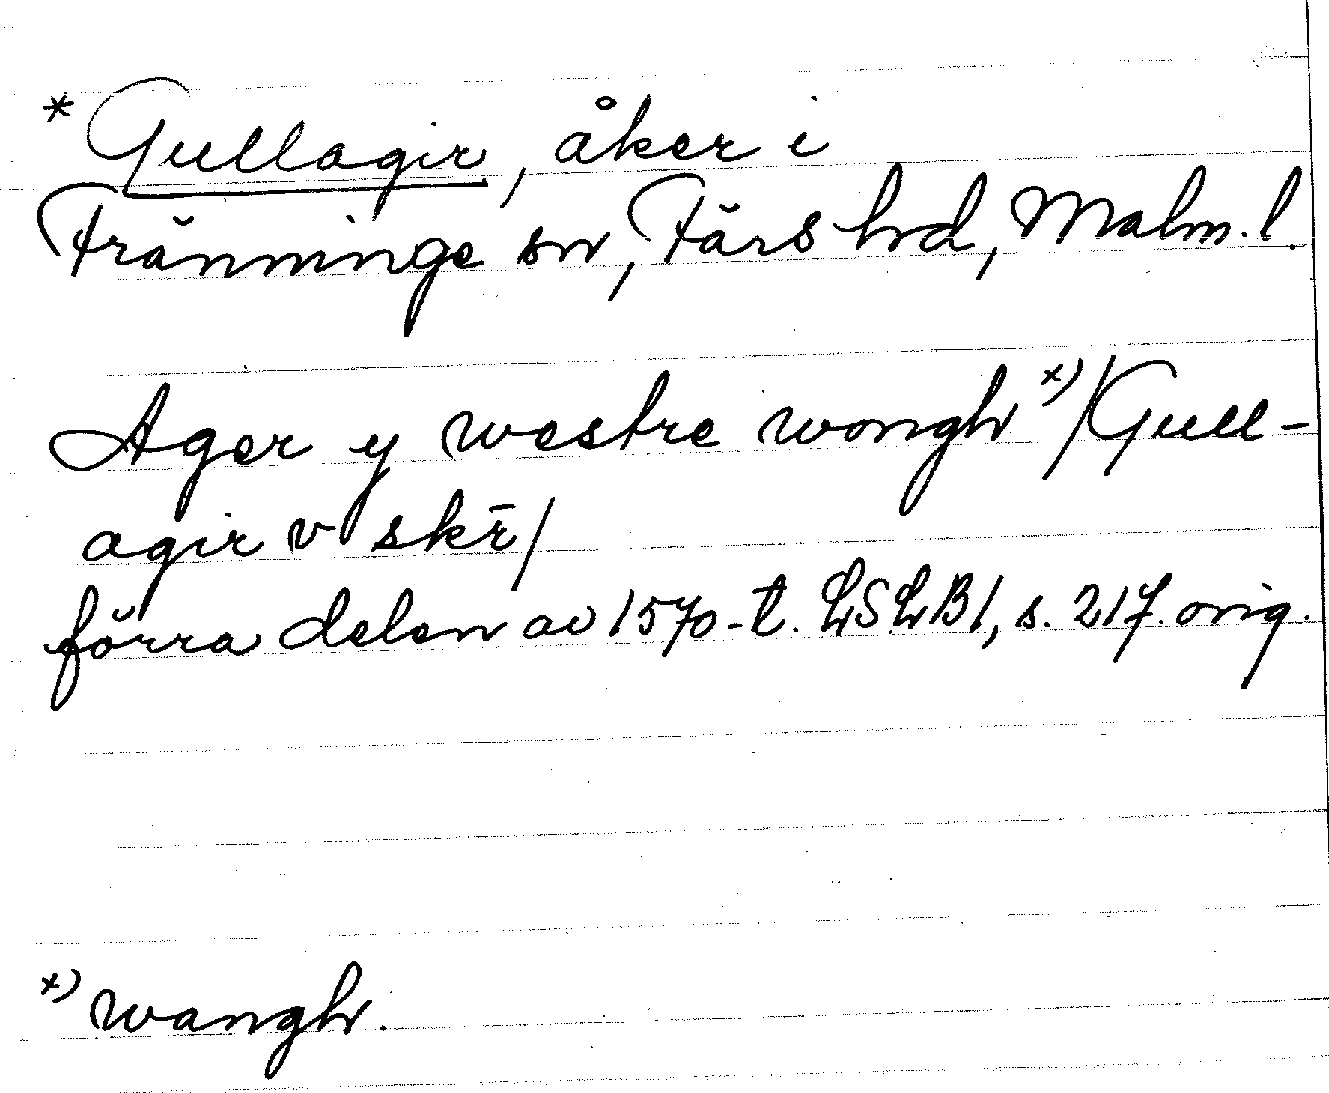 * Gullagir, åker i
Fränninge sn, Färs hd, Malm. l.
Ager y westre wongh x) /Gull-
agir v skr̄/
förra delen av 1570-t. LSLB1, s. 217. orig.
x) wangh.